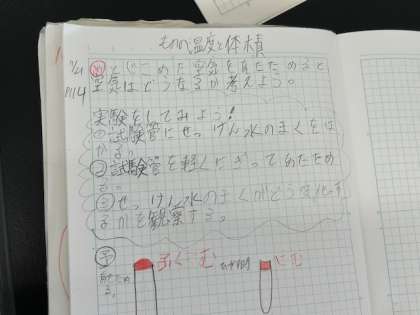 ものの温度と体積
11/21
め とじこめた空気をあたためると
P114 空気はどうなるか考えよう。
実験をしてみよう!
①試験管にせっけん水のまくをは
かる。
②試験管を軽くにぎってあたため
る。
③せっけん水のまくがどう変化す
るかを観察する。
予 ふくらむ
あたためる。